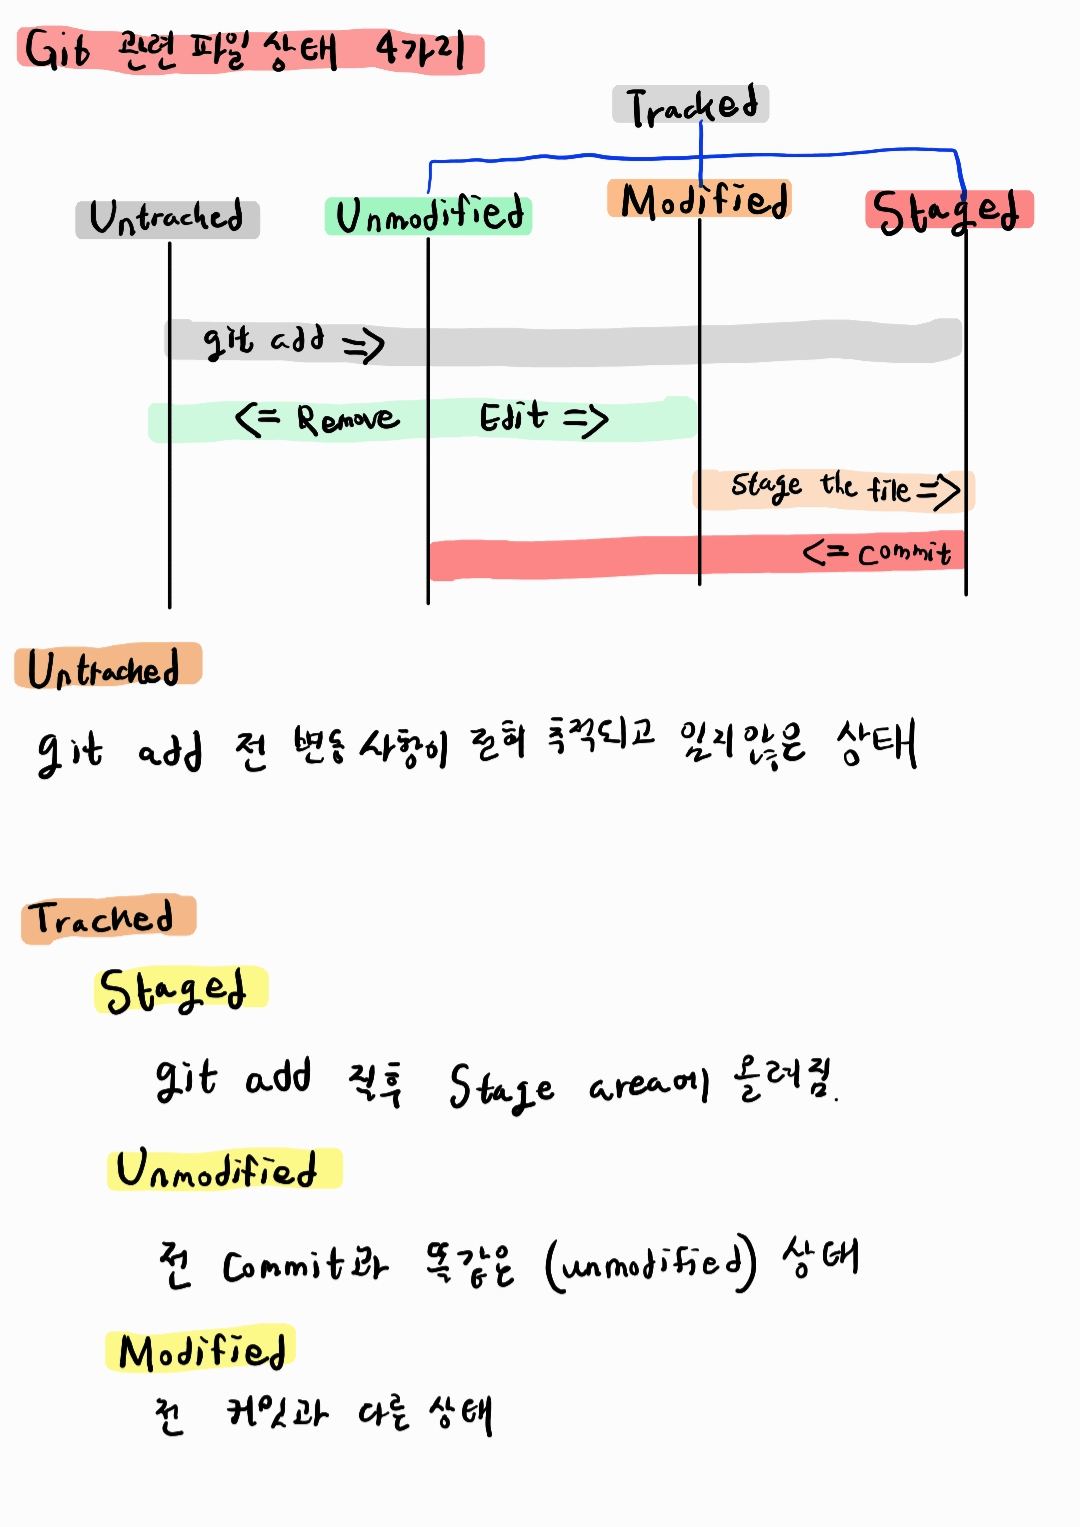 Git 관련 파일 상태 4가지
Tracked
Untracked Unmodified Modified Staged
git add =>
<= Remove Edit =>
Stage the file =>
<= commit
Untracked
git add 전 변동 사항이 전혀 추적되고 있지 않은 상태
Tracked
Staged
git add 직후 Stage area에 올려짐.
Unmodified
전 Commit과 똑같은 (unmodified) 상태
Modified
전 커밋과 다른 상태